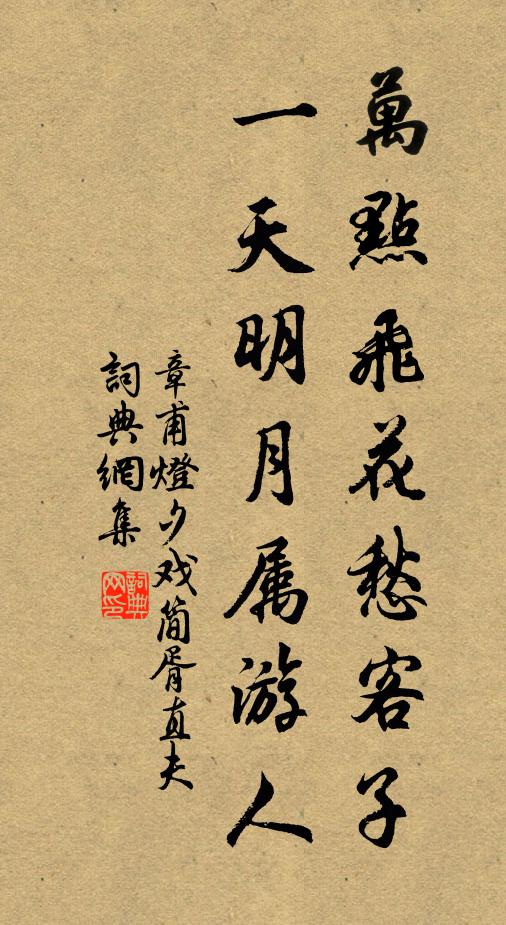 萬點飛花愁客子
一天明月属游人
章甫燈夕戏简胥直夫
詞典網集
詞典网印